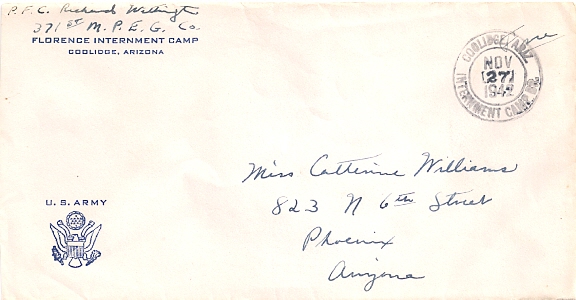 P.F.C. Richard Wellington
371st M.P.E.G. Co.
FLORENCE INTERNMENT CAMP
COOLIDGE, ARIZONA
Free
COOLIDGE, ARIZ.
NOV
27
1942
INTERNMENT CAMP BR.
Miss Catterine Williams
823 N 6th Street
Phoenix
Arizona
U. S. ARMY